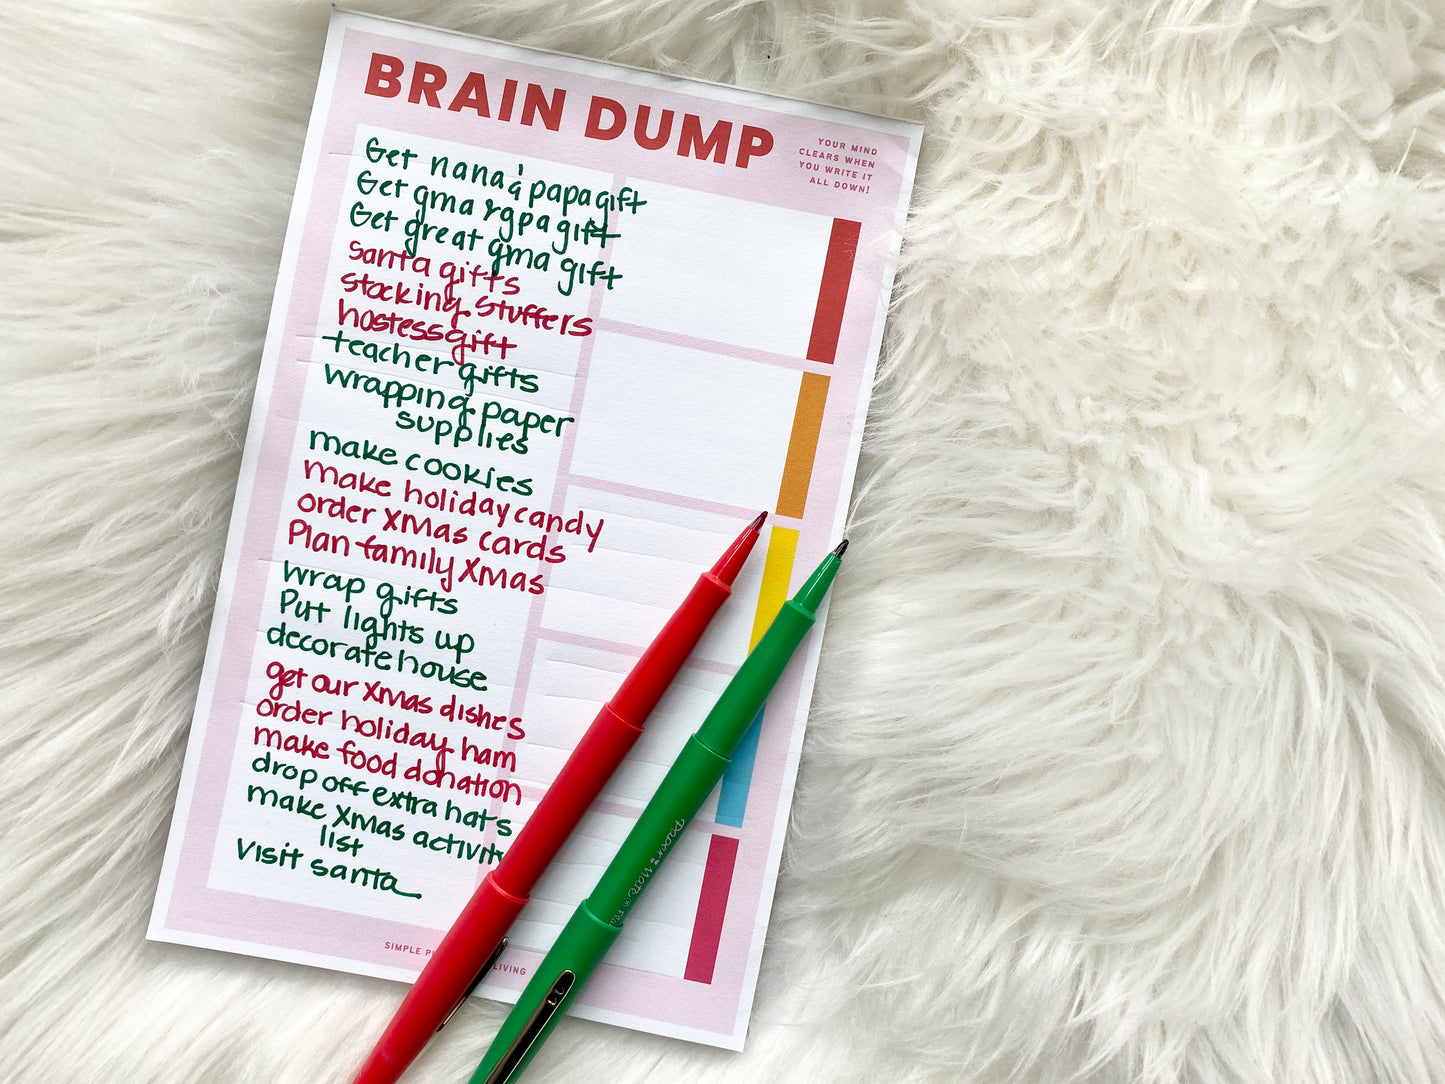 BRAIN DUMP
YOUR MIND
CLEARS WHEN
YOU WRITE IT
ALL DOWN!
Get nana & papa gift
Get gma & gpa gift
Get great gma gift
santa gifts
stocking stuffers
hostess gift
teacher gifts
wrapping paper
supplies
make cookies
make holiday candy
order xmas cards
Plan family xmas
wrap gifts
Put lights up
decorate house
get our xmas dishes
order holiday ham
make food donation
drop off extra hats
make xmas activity
list
Visit santa
SIMPLE
LIVING
Paper Mate